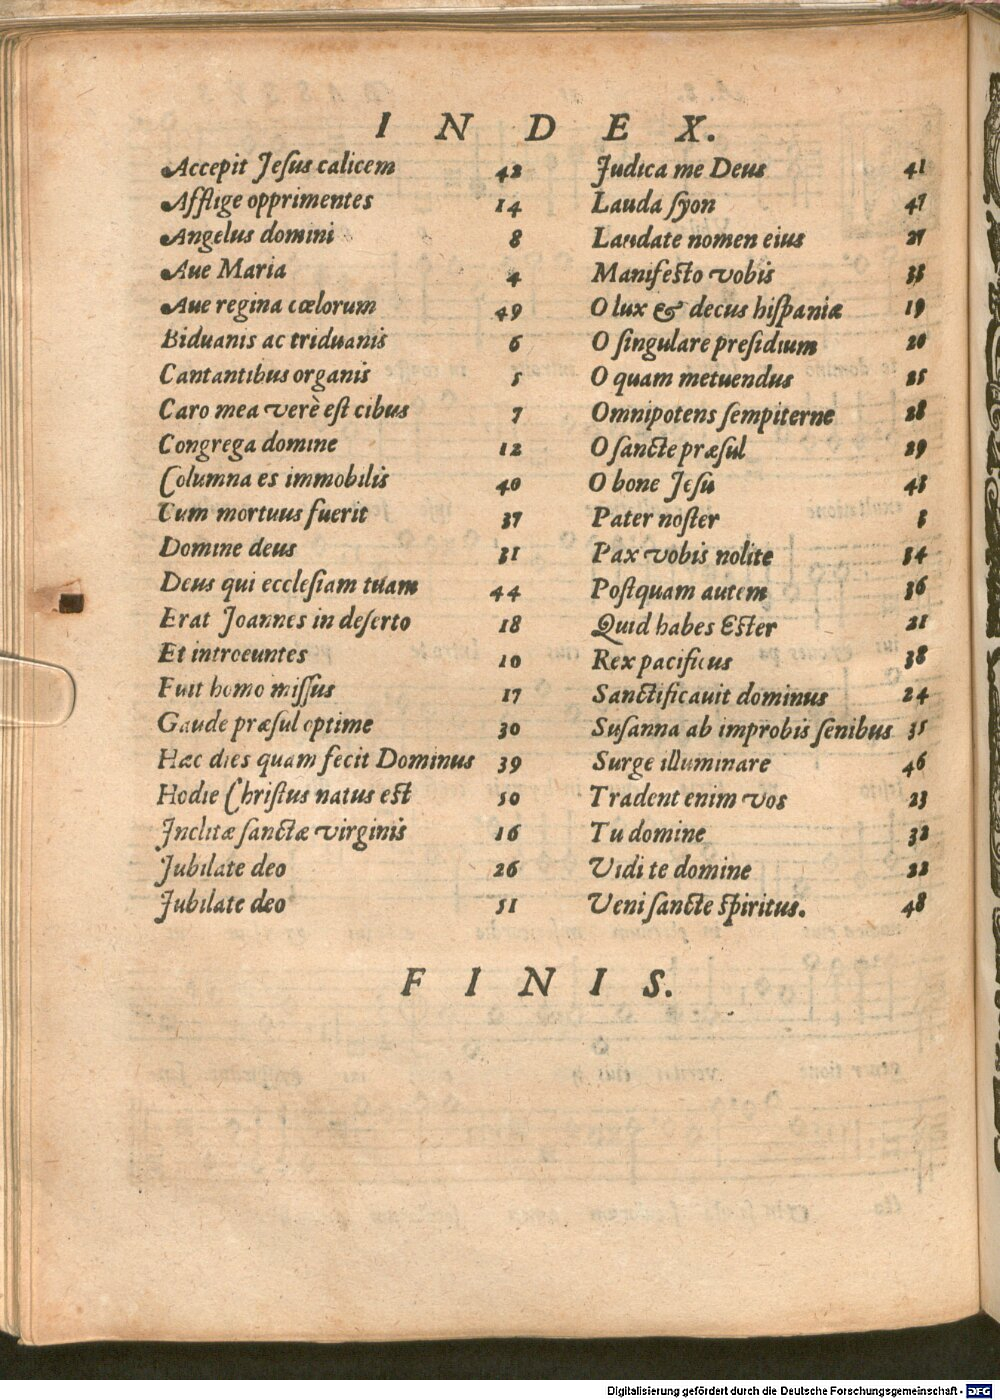 INDEX.
Accepit Jeſus calicem 42
Afflige opprimentes 14
Angelus domini 8
Aue Maria 4
Aue regina cœlorum 49
Biduanis ac triduanis 6
Cantantibus organis 5
Caro mea verè eſt cibus 7
Congrega domine 12
Columna es immobilis 40
Cum mortuus fuerit 37
Domine deus 31
Deus qui eccleſiam tuam 44
Erat Joannes in deſerto 18
Et introeuntes 10
Fuit homo miſſus 17
Gaude præſul optime 30
Hæc dies quam fecit Dominus 39
Hodie Chriſtus natus eſt 50
Inclitæ ſanctæ virginis 16
Jubilate deo 26
Jubilate deo 51
Judica me Deus 41
Lauda ſyon 47
Laudate nomen eius 27
Manifeſto vobis 33
O lux & decus hiſpaniæ 19
O ſingulare preſidium 20
O quam metuendus 25
Omnipotens ſempiterne 28
O ſancte præſul 29
O bone Jeſu 43
Pater noſter 3
Pax vobis nolite 34
Poſtquam autem 36
Quid habes Eſter 21
Rex pacificus 38
Sanctificauit dominus 24
Suſanna ab improbis ſenibus 35
Surge illuminare 46
Tradent enim vos 23
Tu domine 32
Vidi te domine 22
Veni ſancte ſpiritus. 48
FINIS.
Digitalisierung gefördert durch die Deutsche Forschungsgemeinschaft - DFG